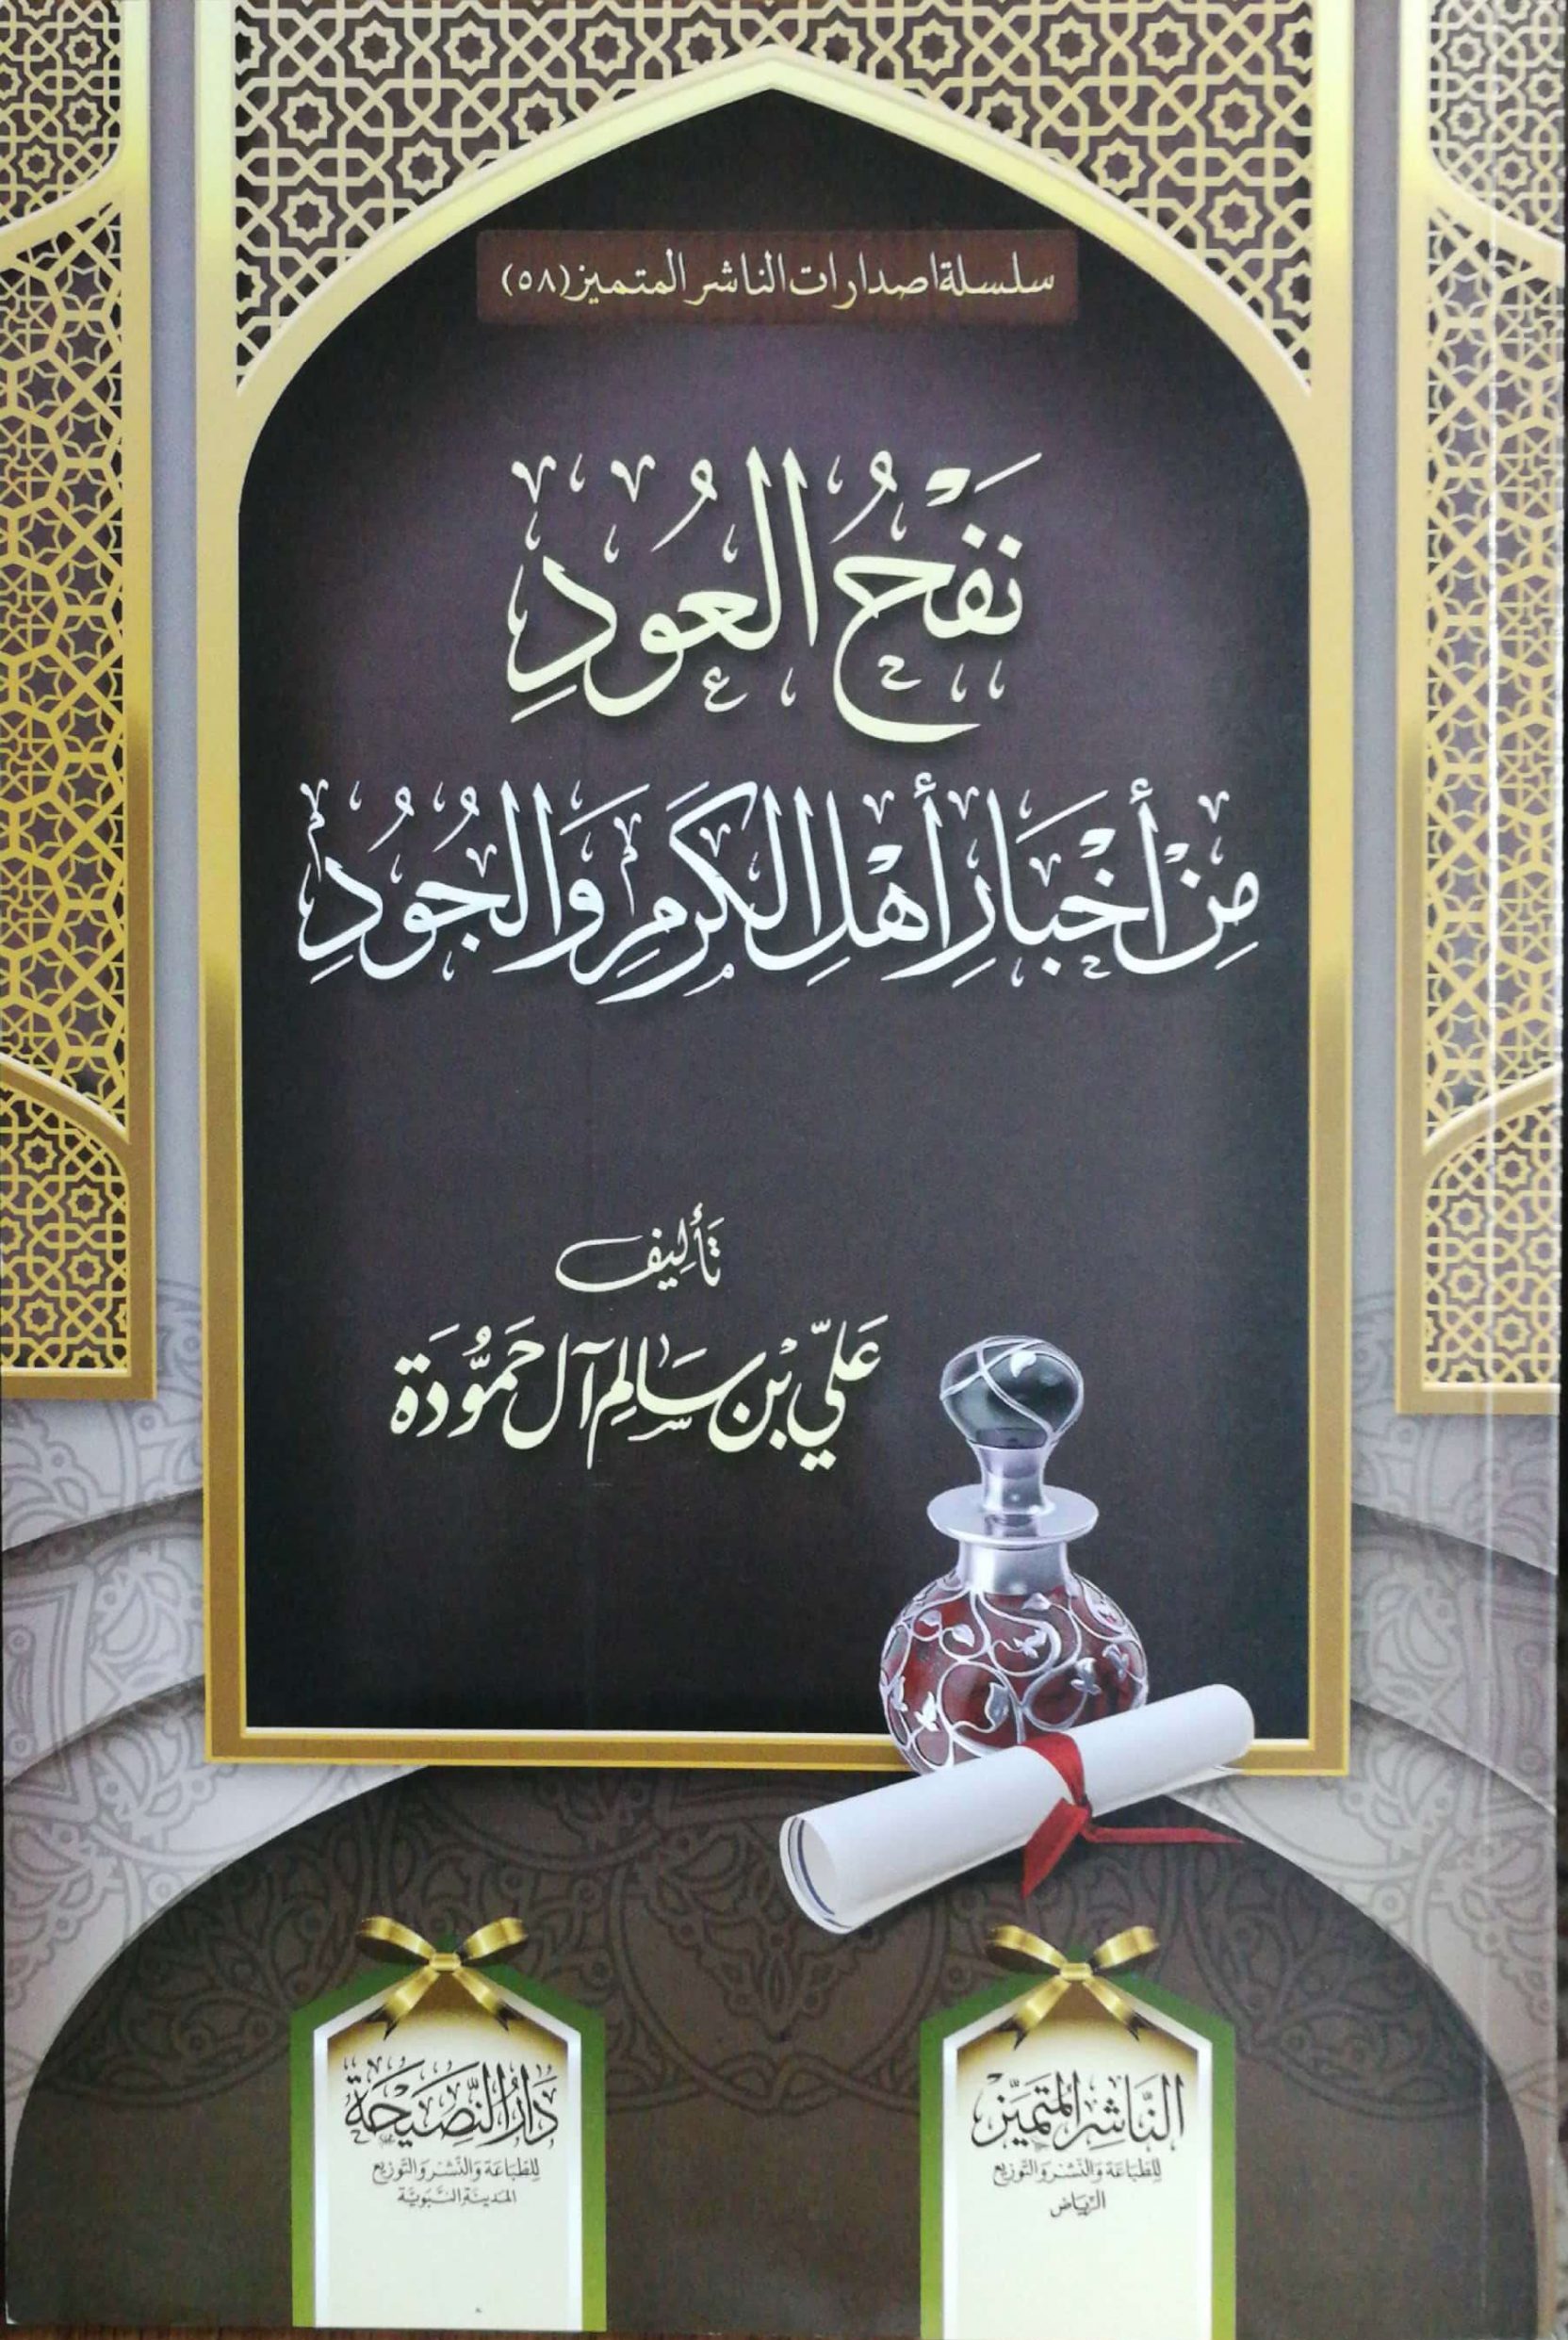 سلسلة اصدارات الناشر المتميز (٥٨)
نَفْحُ العُودِ
مِنْ أَخْبَارِ أَهْلِ الكَرَمِ وَالجُودِ
تَأليف
عَليّ بْن سَالِم آل حَمُّودَة
النَّاشِر المتَميّز
لِلطّبَاعَة وَالنَّشْر وَالتَّوزيع
الرّيَاض
دَارُ النَّصِيْحَة
لِلطّبَاعَة وَالنَّشْر وَالتَّوزيع
المَدينَة النَّبَويَّة